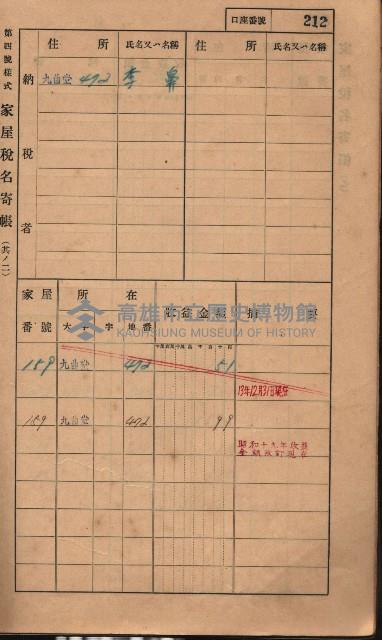 口座番號 212
第四號樣式 家屋稅名寄帳 (其ノ二)
納稅者
住所 氏名又ハ名稱 住所 氏名又ハ名稱
九曲堂 472 李
家屋番號 所在 大字 地番
159 九曲堂 472 51
13年12月31日現在
159 九曲堂 472 99
昭和十九年改
高雄市立歷史博物館
KAOHSIUNG MUSEUM OF HISTORY